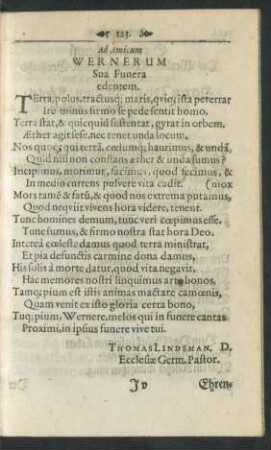 123.
Ad Amicum
WERNERUM
Sua Funera
edentem.
TErra, polus, tractusq; maris, qviq; ista pererrar
Ire minus firmo se pede sentit homo,
Terra stat, & quicquid sustentat, gyrat in orbem,
Æther agit sese, nec tenet unda locum.
Nos quoq; qui terrā, cœlumq; haurimus, & undā,
Quid nisi non constans æther & unda sumus?
Incipimus, morimur, facimus, quod fecimus, &
In medio currens pulvere vita cadit. (mox
Mors tamē & fatū, & quod nos extrema putamus,
Quod nequiit vivens hora videre, tenent.
Tunc homines demum, tunc veri cœpimus esse.
Tunc sumus, & firmo nostra stat hora Deo.
Interea cœleste damus quod terra ministrat,
Et pia defunctis carmine dona damus,
His solis à morte datur, quod vita negavit.
Hac memores nostri linquimus arte bonos.
Tamq; pium est istis animas mactate camœnis,
Quam venit ex isto gloria certa bono,
Tuq; pium, Wernere, melos qui in funere cantas
Proximi, in ipsius funere vive tui.
THOMAS LINDEMAN, D.
Ecclesiæ Germ. Pastor.
J v
Ehren-